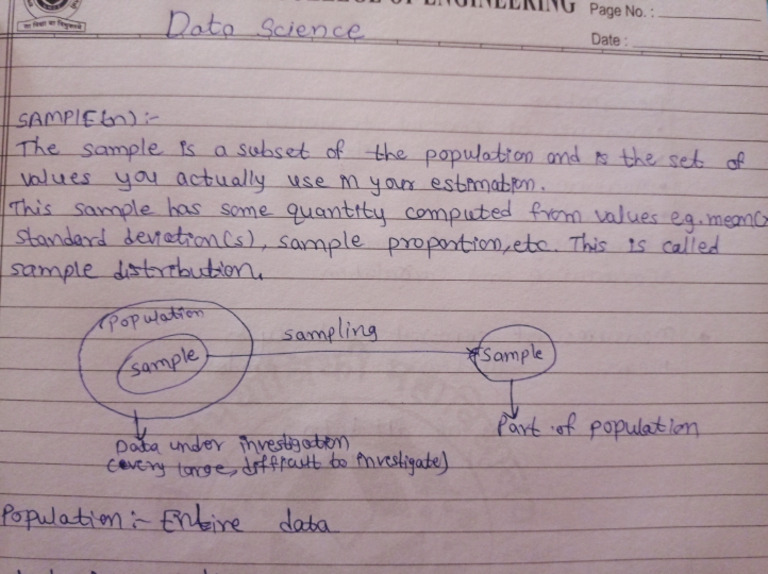 COLLEGE OF ENGINEERING
Page No. :
Data Science
Date :
SAMPLE(n) :-
The sample is a subset of the population and is the set of
values you actually use in your estimation.
This sample has some quantity computed from values eg. mean(x
standard deviation(s), sample proportion, etc. This is called
sample distribution.
Population
sample
sampling
sample
Data under investigation
(very large, difficult to investigate)
Part of population
Population :- Entire data